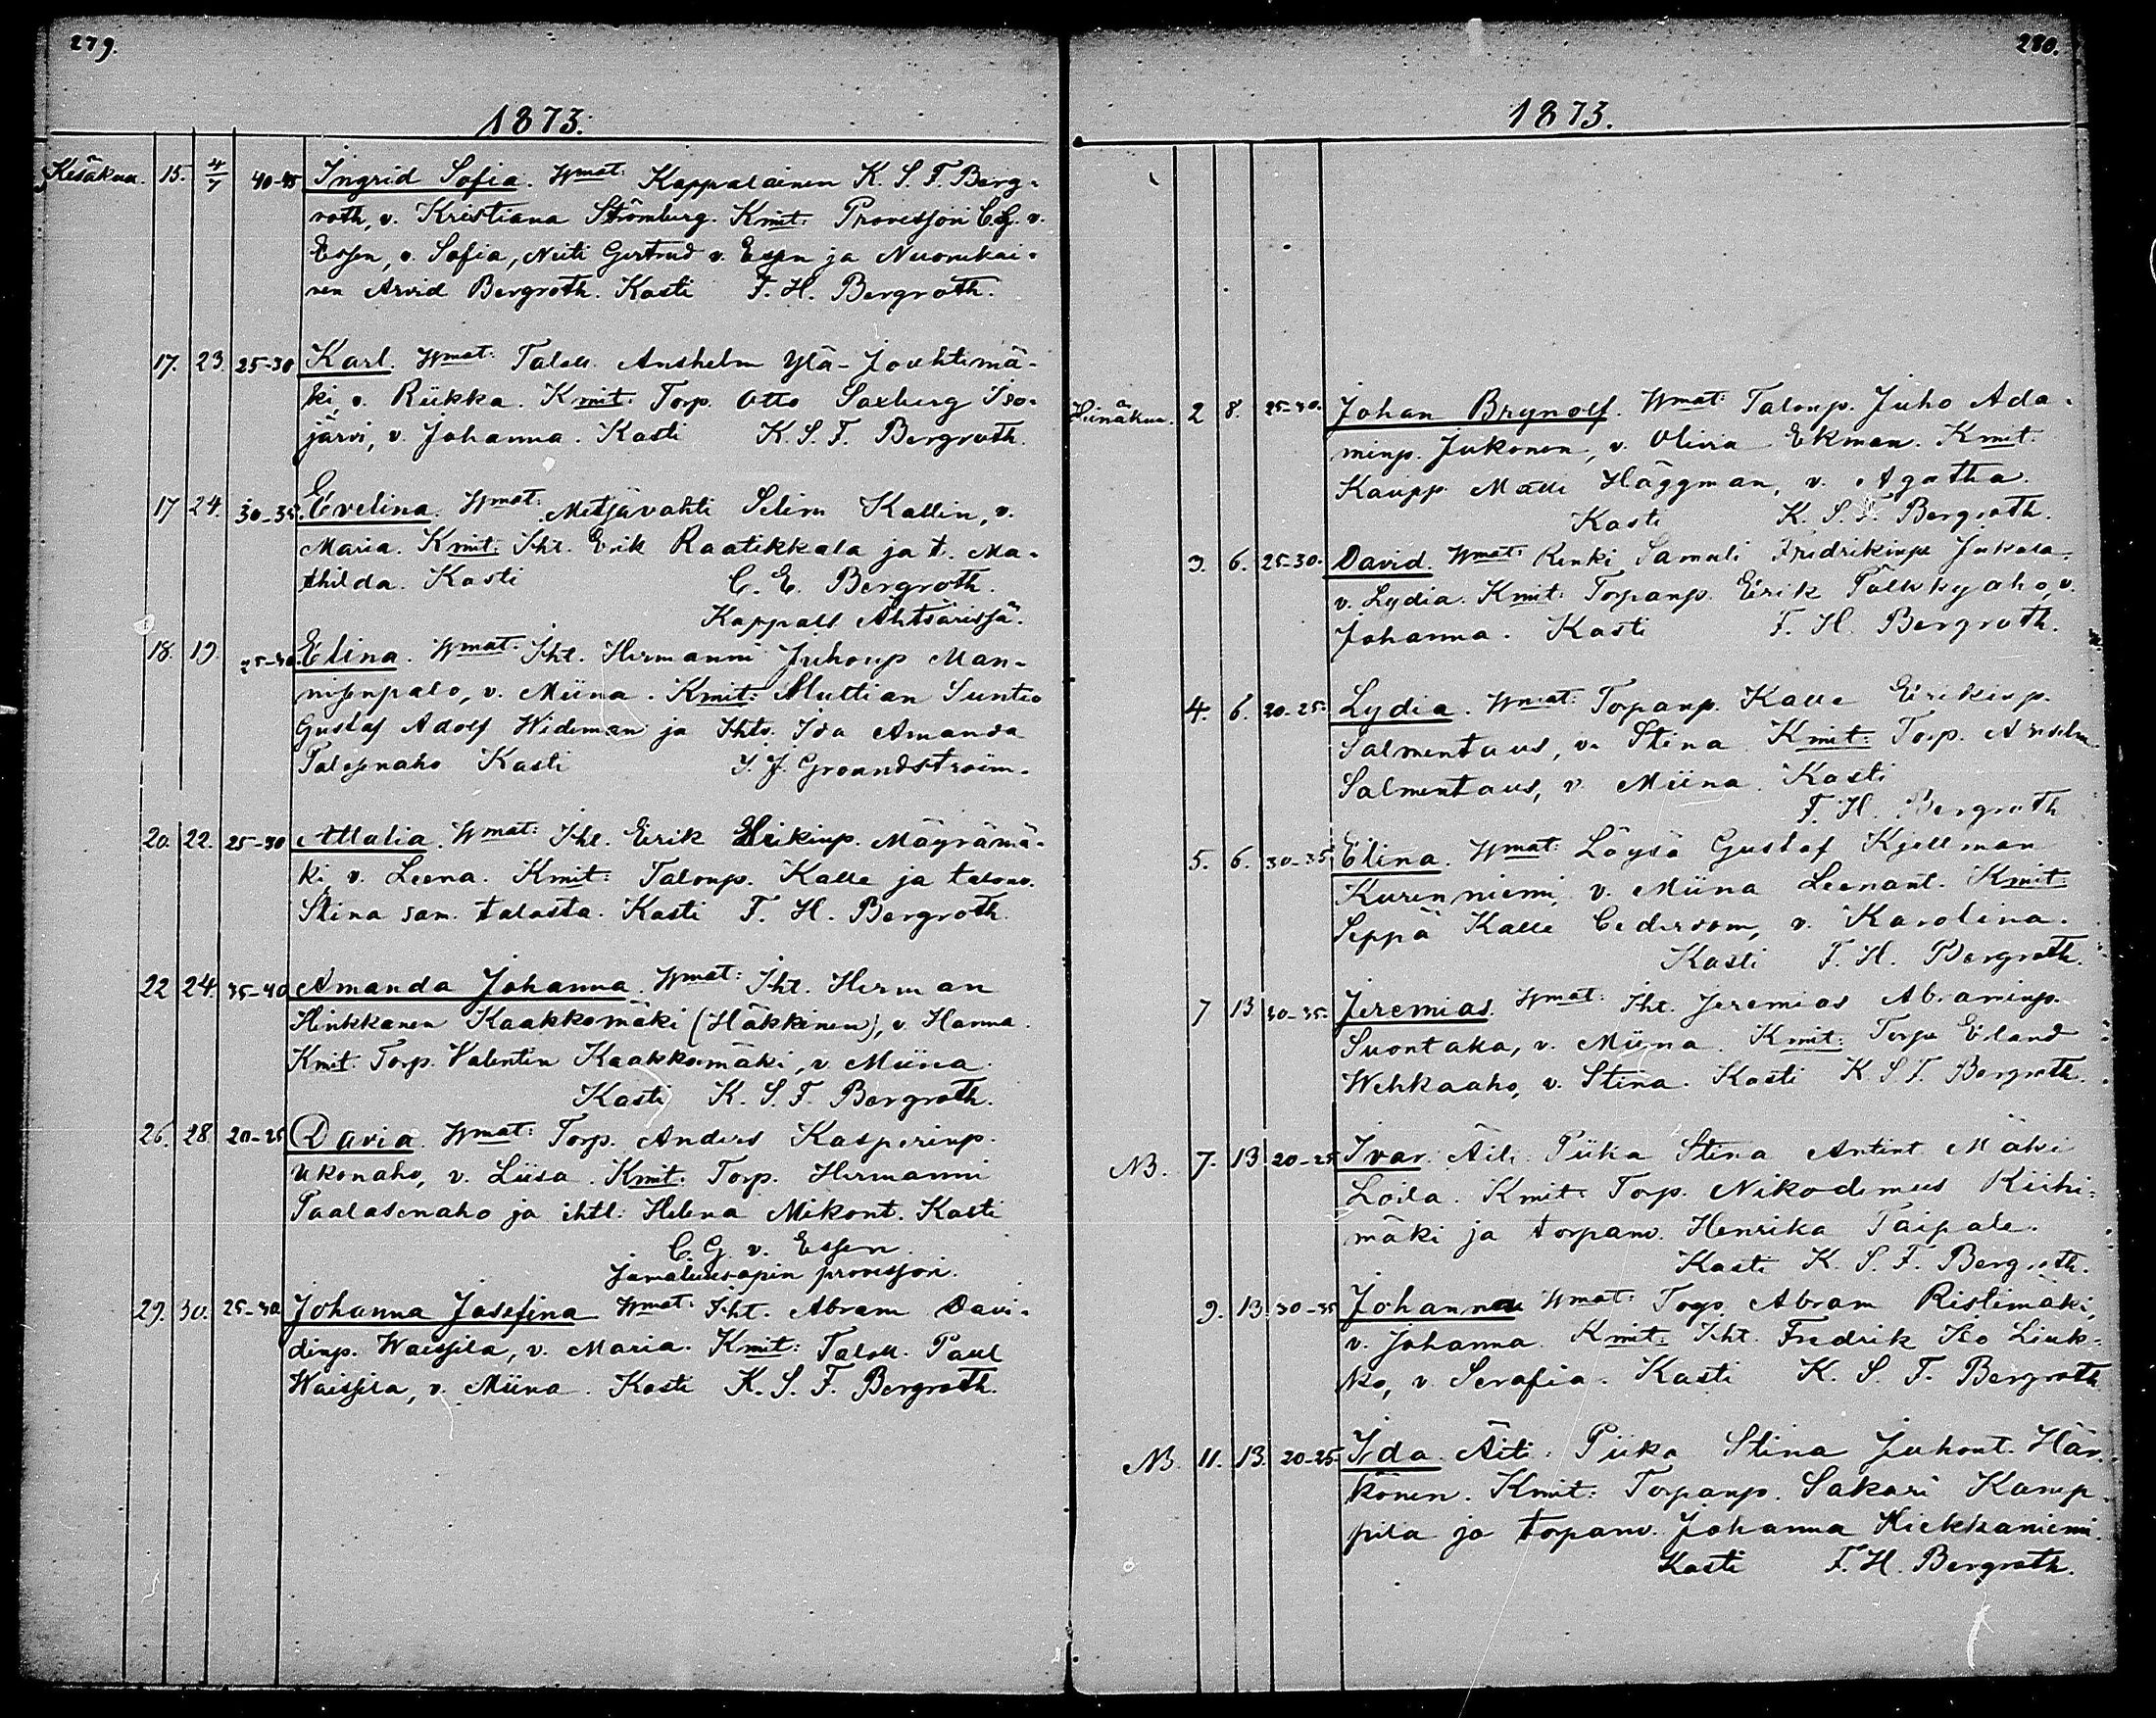 279.
1873.
Kesäkuu. 15. 4/7 40-45 Ingrid Sofia. Wmat: Kappalainen K. S. F. Berg-
roth, v. Kristiana Strömberg. Kmit: Provessori C. G. v.
Essen, v. Sofia, Neiti Gertrud v. Essen ja Nuorukai-
nen Arvid Bergroth. Kasti F. H. Bergroth.
17. 23. 25-30 Karl. Wmat: Talol. Anshelm Ylä-Jouhtimä-
ki, v. Riikka. Kmit: Torp. Otto Saxberg Iso-
järvi, v. Johanna. Kasti K. S. F. Bergroth.
17 24. 30-35. Evelina. Wmat: Metsävahti Selim Kallin, v.
Maria. Kmit: Iht. Erik Raatikkala ja t. Ma-
thilda. Kasti C. E. Bergroth.
Kappall Ähtärissä.
18. 19. 25-30 Elina. Wmat: Iht. Hermanni Juhonp Man-
nisenpalo, v. Miina. Kmit: Multian Suntio
Gustaf Adolf Wideman ja Ihtv. Ida Amanda
Talasnaho Kasti J. J. Groundstroim.
20. 22. 25-30 Attalia. Wmat: Iht. Eerik Erikinp. Mäyrämä-
ki, v. Leena. Kmit: Talonp. Kalle ja talonv.
Stina sam. talosta. Kasti F. H. Bergroth.
22 24. 35-40 Amanda Johanna. Wmat: Iht. Herman
Hinkkanen Kaakkomäki (Häkkinen), v. Hanna.
Kmit. Torp. Valentin Kaakkomäki, v Miina.
Kasti K. S. F. Bergroth.
26. 28. 20-25 Davia. Wmat: Torp. Anders Kasperinp.
Ukonaho, v. Liisa. Kmit: Torp. Hermanni
Paalasenaho ja ihtl. Helena Mikont. Kasti
C. G. v. Essen.
Jumaluusopin provessori.
29. 30. 25-30 Johanna Josefina Wmat: Iht. Abram Davi-
dinp. Waissila, v. Maria. Kmit: Talol. Paul
Waissila, v. Miina. Kasti K. S. F. Bergroth.
280.
1873.
Heinäkuu. 2 8. 25-30. Johan Brynolf. Wmat: Talonp. Juho Ada-
minp. Jukonen, v. Olivia Ekman. Kmit:
Kaupp. Matti Häggman, v. Agatha.
Kasti K. S. F. Bergroth.
3. 6. 25-30. David. Wmat: Renki Samuli Fredrikinp. Jukola.
v. Lydia. Kmit: Torpanp. Eerik Pölkkyaho, v.
Johanna. Kasti F. H. Bergroth.
4. 6. 20-25. Lydia. Wmat: Torpanp. Kalle Eerikinp.
Salmentaus, v. Stina. Kmit: Torp. Anselm
Salmentaus, v. Miina. Kasti
F. H. Bergroth
5. 6. 30-35 Elina. Wmat: Löysä Gustaf Kjellman
Kurenniemi, v. Miina Leenant. Kmit:
Seppä Kalle Cedersom, v. Karolina.
Kasti F. H. Bergroth.
7 13 30-35. Jeremias. Wmat: Iht. Jeremias Abraminp.
Suontaka, v. Miina. Kmit: Torp Erland
Wehkaaho, v. Stina. Kasti K. S. F. Bergroth.
NB. 7. 13 20-25 Ivar. Äiti: Piika Stina Antint. Mäki
Loila. Kmit: Torp. Nikodemus Riihi-
mäki ja torpanv. Henrika Taipale.
Kasti K. S. F. Bergroth.
9. 13. 30-35 Johannes Wmat: Torp. Abram Ristimäki,
v. Johanna. Kmit: Iht. Fredrik Iso Liuk-
ko, v. Serafia. Kasti K. S. F. Bergroth
NB. 11. 13. 20-25 Ida. Äiti: Piika Stina Juhont. Här-
könen. Kmit: Torpanp. Sakari Kamp-
pila ja torpanv. Johanna Hiekkaniemi.
Kasti F. H. Bergroth.